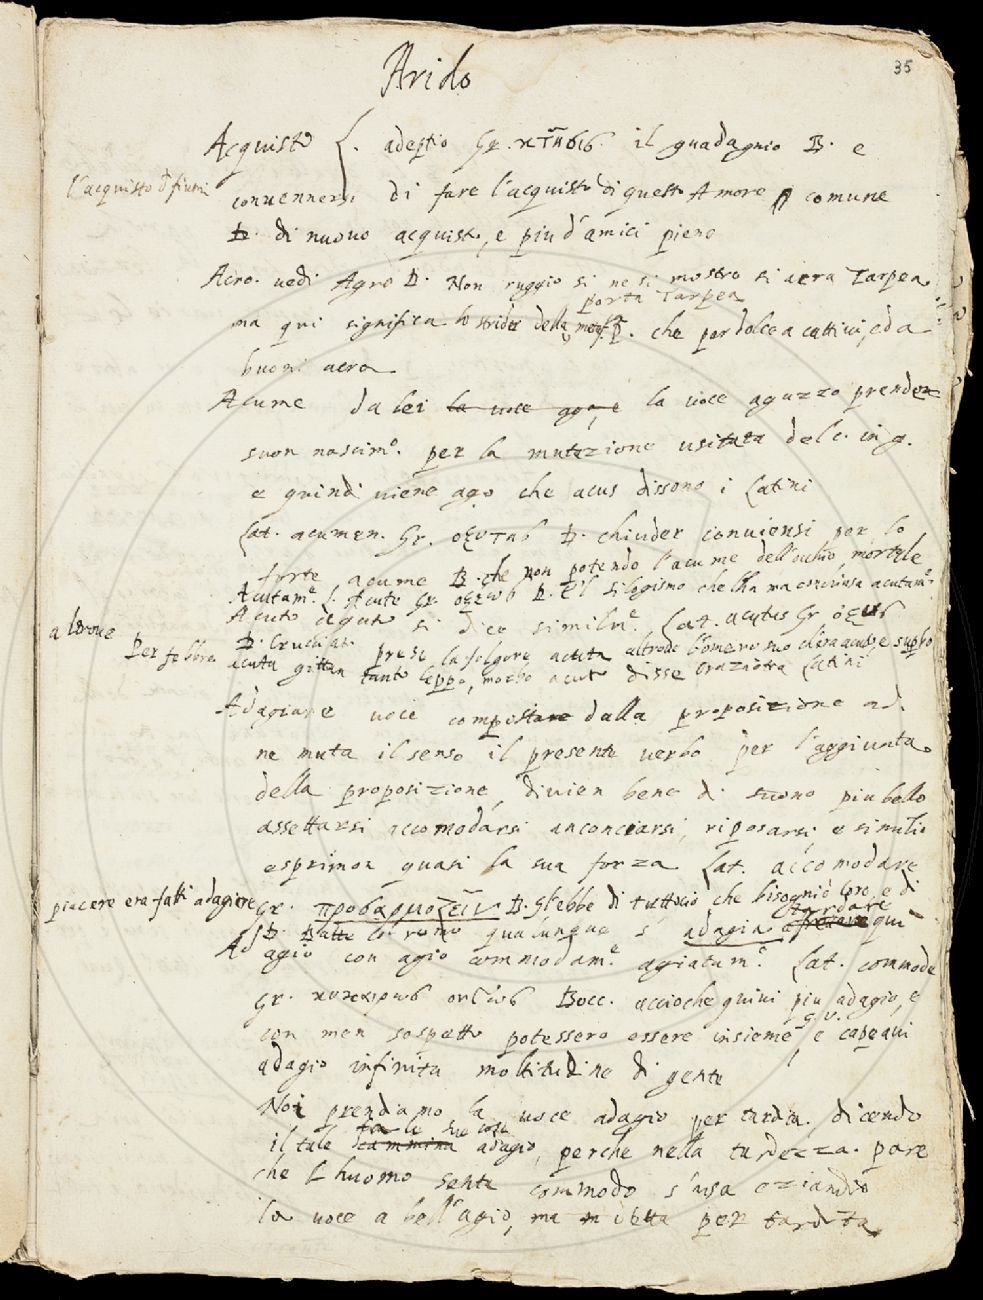 35
Arido
Acquisto L. adeptio Gr. κτῆσις. il guadagnio B. e
l'acquisto di fiumi
convennersi di fare l'acquisto di questo Amore comune
D. di nuovo acquisto, e piu d'amici pieno
Acro. vedi Agro D. Non ruggio si ne si mostro si acra Tarpea
porta Tarpea
ma qui significa lo strider della P. che per dolce a cattivi, ed a
buoni acra
Acume da lei la voce aguzzo prender
suon nascim.o per la mutazione usitata del c. in g.
e quindi viene ago che acus dissono i Latini
Lat. acumen. Gr. οξυτης D. chiuder conviensi per lo
forte acume B. che non potendo l'acume dell'occhio mortale
Acutam.e L. Acute Gr. D. E'l silogismo che l'ha ma conchiusa acutam.e
Acuto si dice similm.e Lat. acutus Gr οξυς
altrove
D. prese la folgore acuta altrove
Per febbre acuta gittan tanto leppo, morbo acuto disse Latini
Adagiare voce compostare dalla proposizione ad.
ne muta il senso il presente verbo per l'aggiunta
della proposizione, divien bene di suono piu bello
assettarsi accomodarsi anconciarsi, riposarsi, e simili
esprimon quasi la sua forza Lat. accomodare
piacere era fatti adagiare
Gr. προσαρμοζειν B. Et ebbe di tuttociò che bisognio loro e di
D. Batte col remo qualunque s adagia tardare qui
Ad agio con agio commodam.e agiatam.e Lat. commode
Gr. Bocc. accioche quivi piu adagio, e
con men sospetto potessero essere insieme e capeavi
adagio infinita moltitudine di gente
Noi prendiamo la voce adagio per tardita. dicendo
fa le sue cose
il tale cammina adagio, perche nella tardezza. pare
che l'huomo senta commodo s'usa eziandio
la voce a bell'agio, ma in detta per tardita